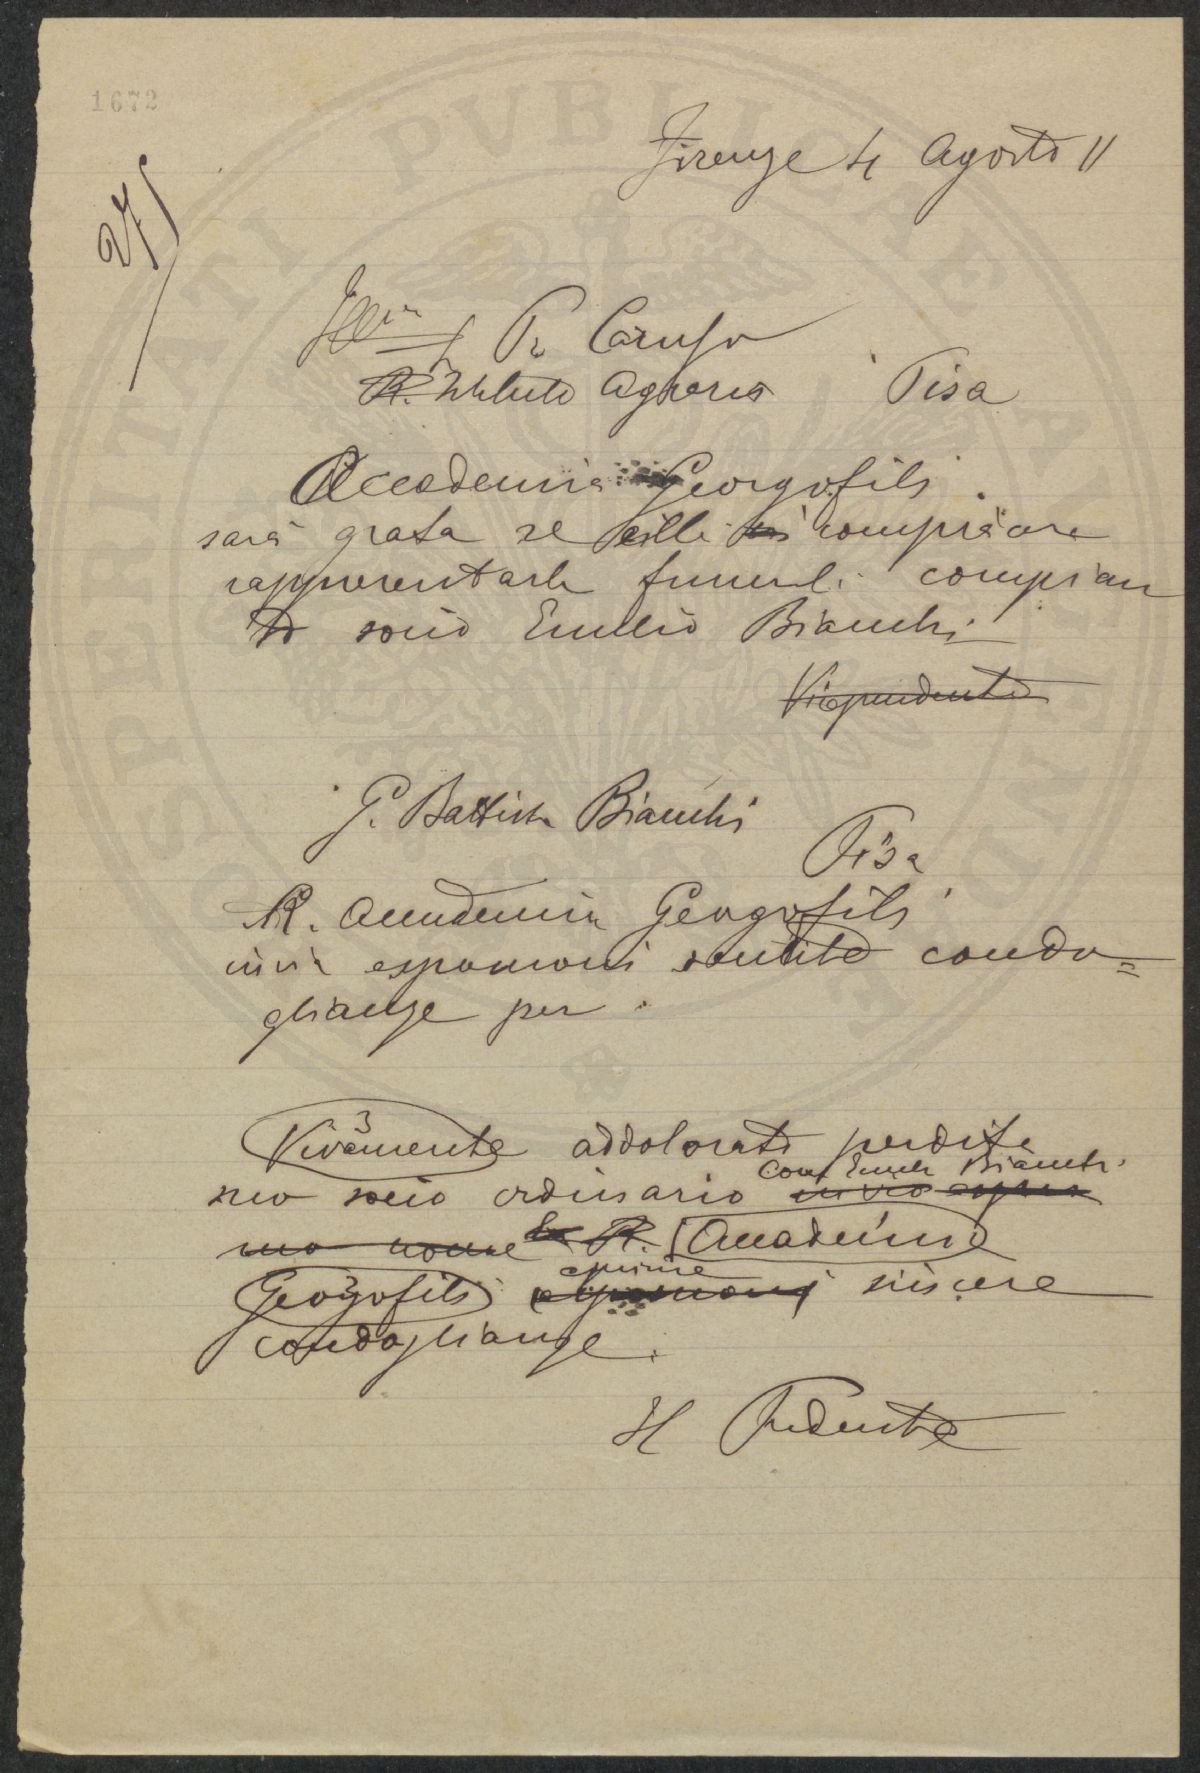 1672
27
Firenze 4 Agosto 11
Ill.mo Pr Caruso
R. Istituto Agrario Pisa
Accademia Georgofili
sarà grata se Ella compiacere
rappresentarla funerali compian
to socio Emilio Bianchi
Vicepresidente
G. Battista Bianchi
Pisa
R. Accademia Georgofili
invia espressioni sentite condo=
glianze per
Vivamente addolorati perdita
Com Emilio Bianchi
suo socio ordinario invio espres
mo nome la R. Accademia
esprime
Georgofili espressioni sincere
condoglianze.
Il Presidente